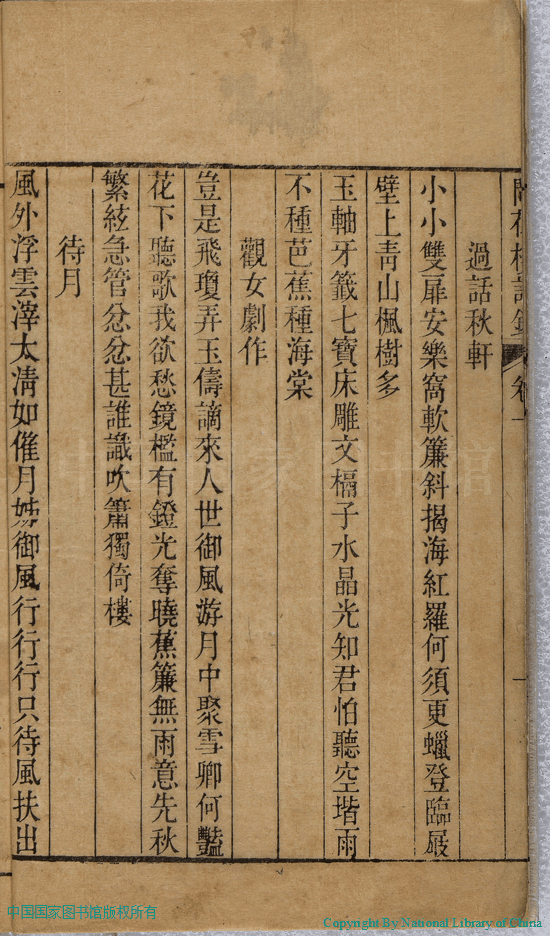 過話秋軒
小小雙扉安樂窩軟簾斜揭海紅羅何須更蠟登臨屐
壁上青山楓樹多
玉軸牙籤七寶床雕文槅子水晶光知君怕聽空堦雨
不種芭蕉種海棠
觀女劇作
豈是飛瓊弄玉儔謫來人世御風游月中聚雪卿何豔
花下聽歌我欲愁鏡檻有鐙光奪曉蕉簾無雨意先秋
繁絃急管怱怱甚誰識吹簫獨倚樓
待月
風外浮雲滓太清如催月姊御風行行行只待風扶出
中国国家图书馆版权所有
Copyright By National Library of China